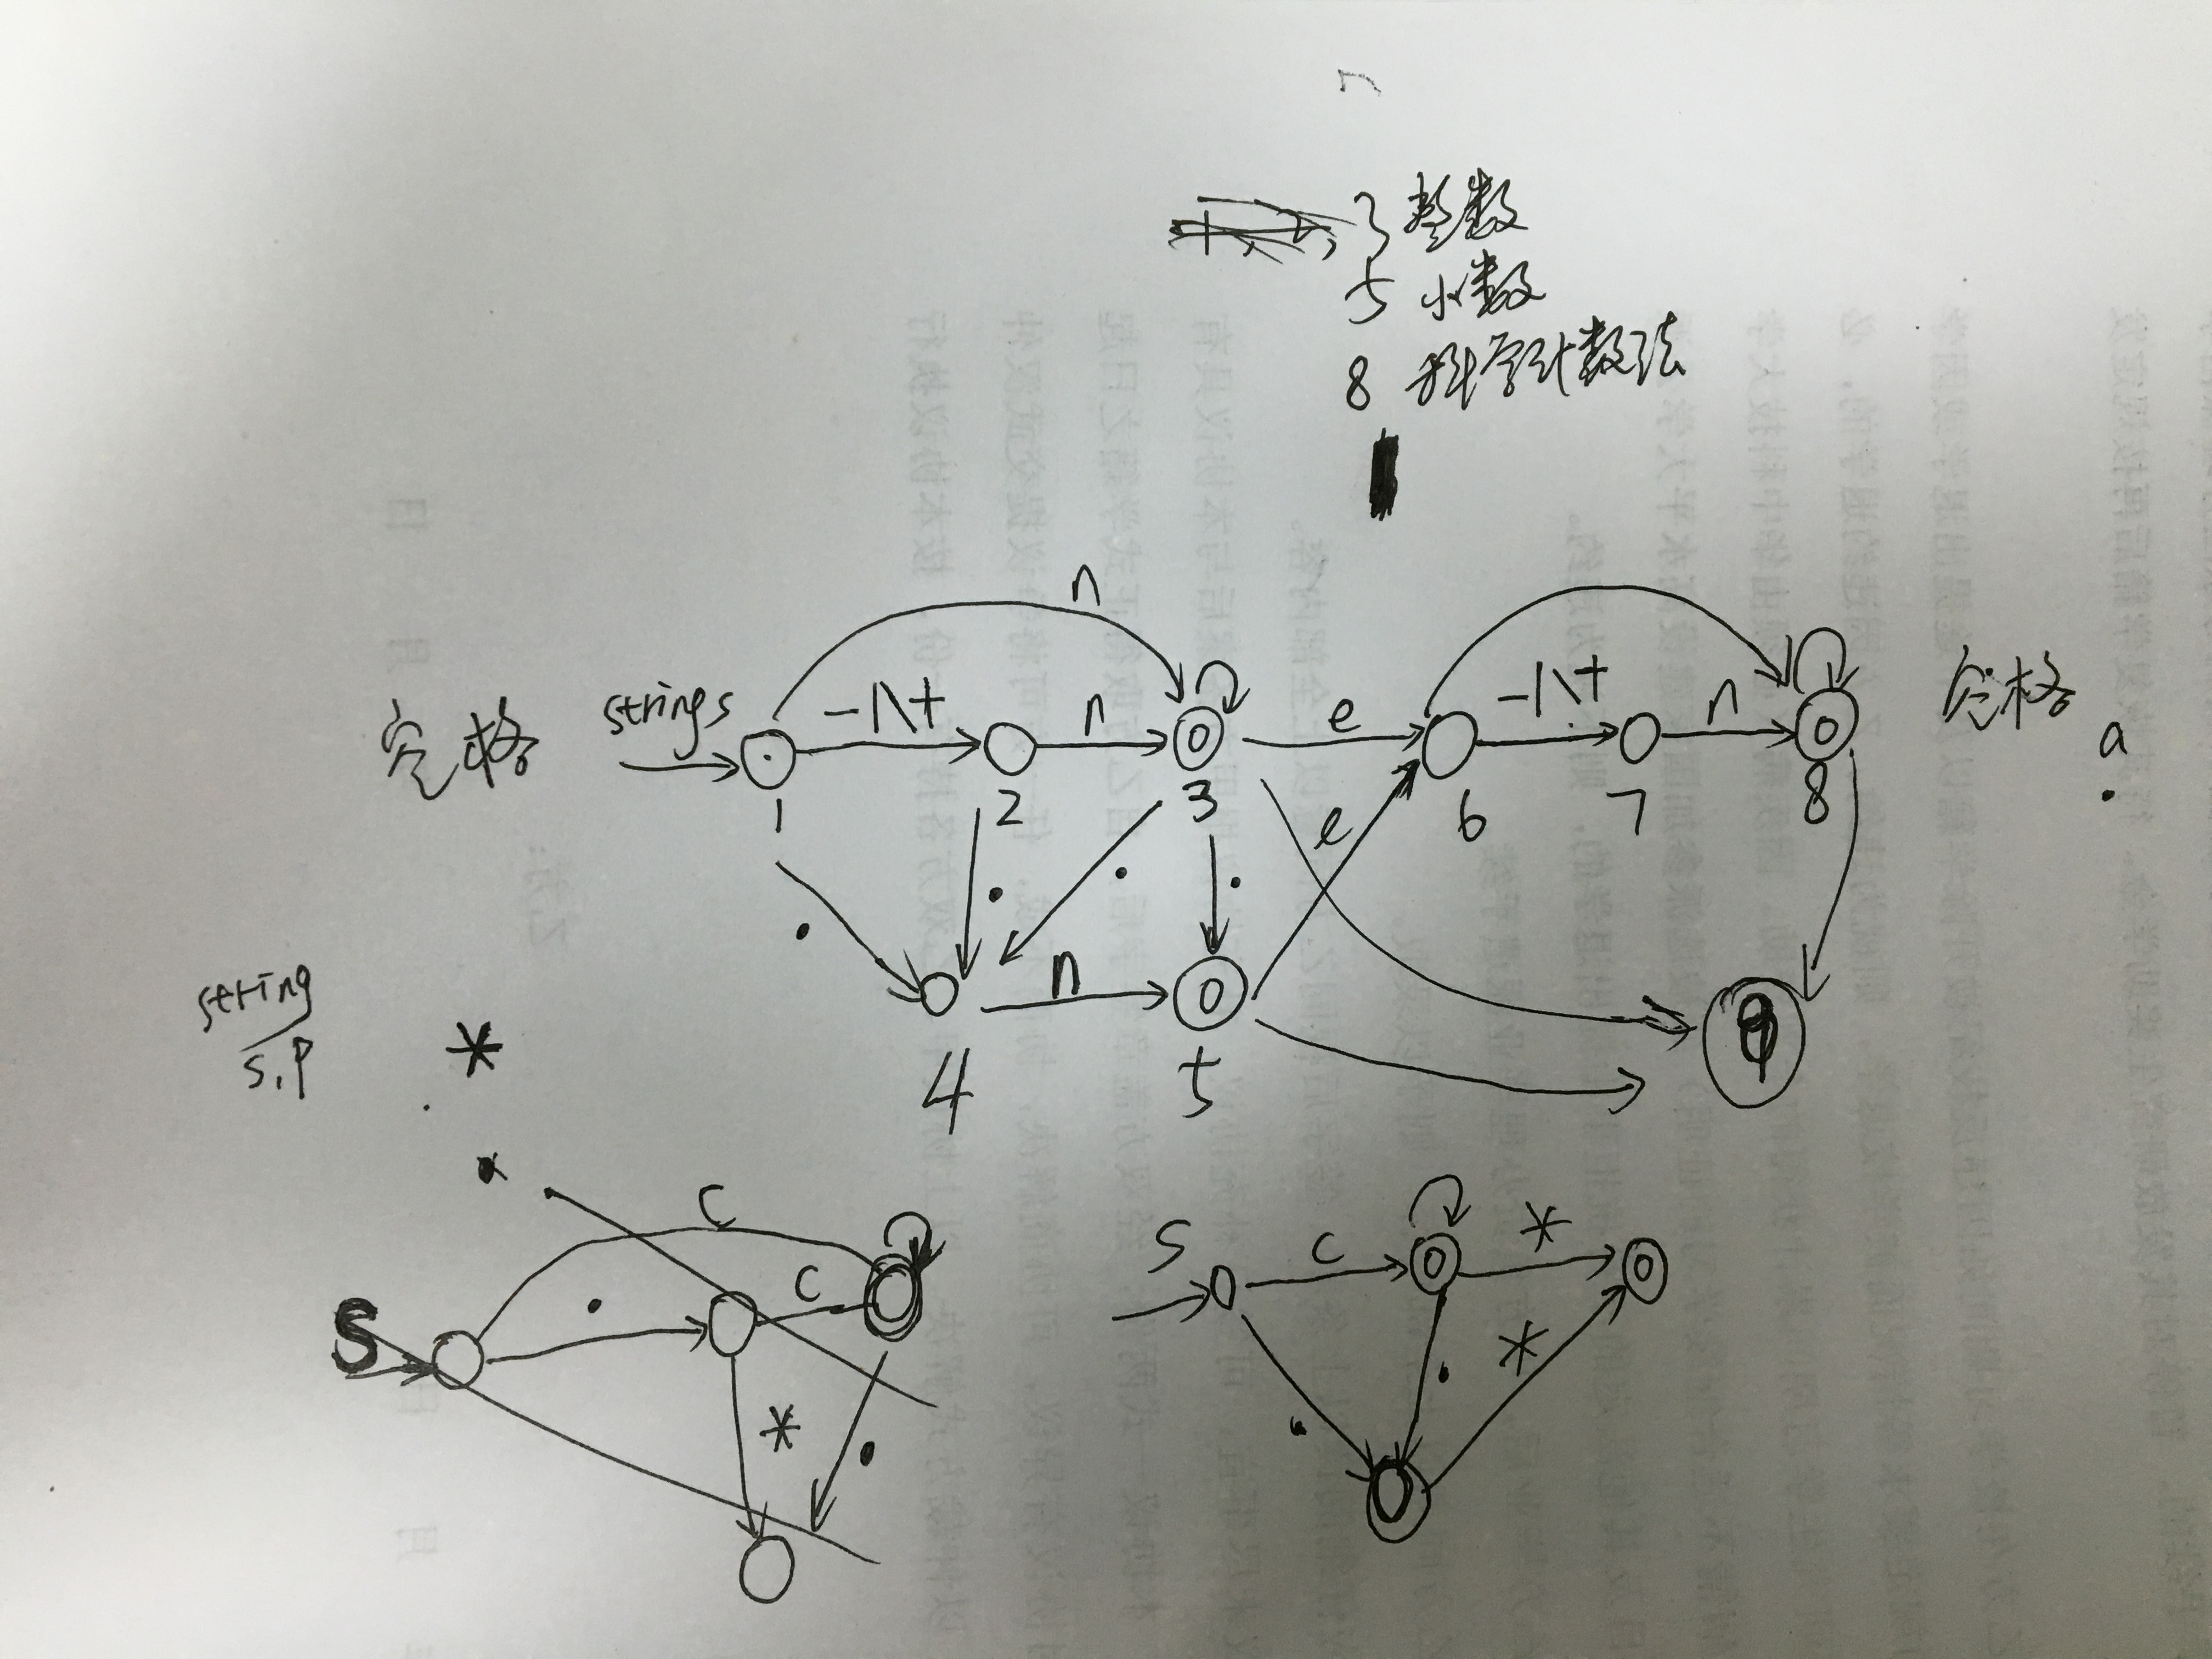 3 整数
5 小数
8 科学计数法
n
空格 strings -|\+ n e -|\+ n 空格
a
1 2 3 6 7 8
. . . . e
n
4 5 9
string
s,p
*
.
C
S . C
* .
S C *
. . *